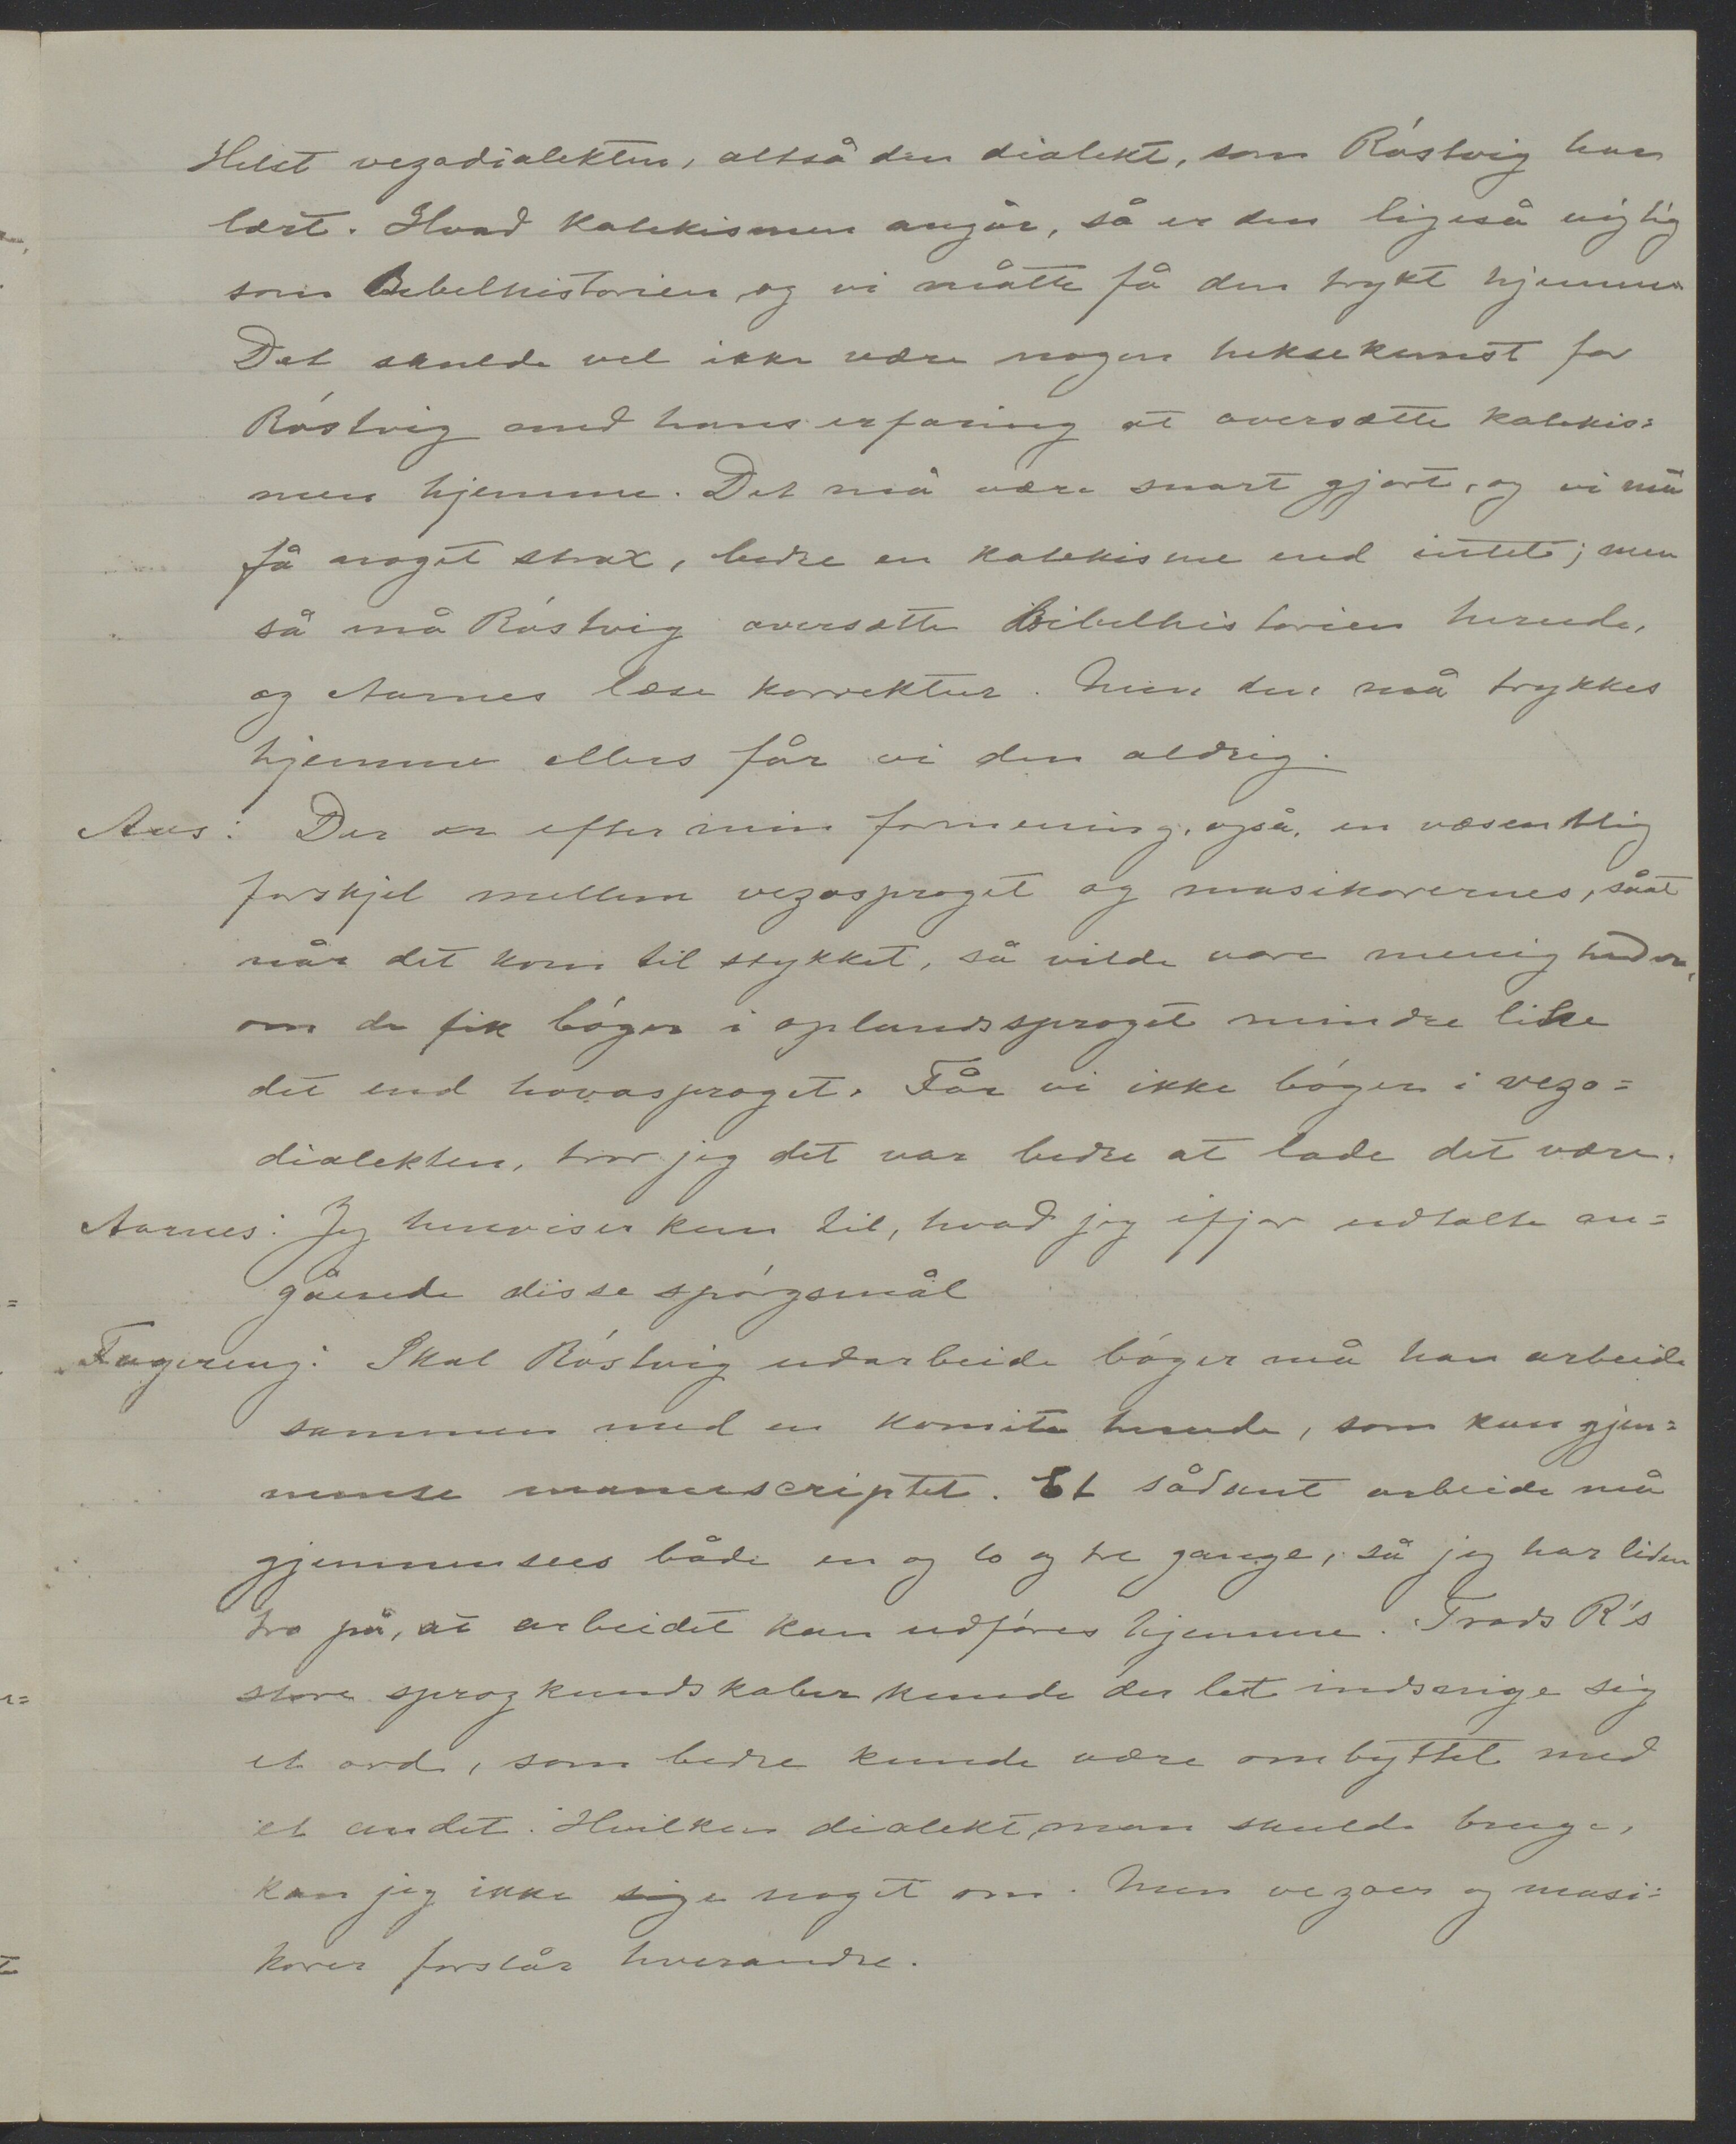 Helst vezodialekten, altså den dialekt, som Róstvig har
lært. Hvad katekismen angår, så er den ligeså vigtig
som Bibelhistorien og vi måtte få den trykt hjemme
Det skulde vel ikke være nogen heksekunst for
Róstvig med hans erfaring at oversætte katekis=
men hjemme. Det må være snart gjort, og vi må
få noget strax, bedre en katekisme end intet; men
så må Róstvig oversætte Bibelhistorien herude,
og Aarnes læse korrektur. Men den må trykkes
hjemme ellers får vi den aldrig.
Aas: Der er efter min formening, også, en væsentlig
forskjel mellem vezosproget og masikorernes, såat
når det kom til stykket, så vilde vore menigheder,
om de fik bóger i oplandssproget mindre like
det end hovasproget. Får vi ikke bóger i vezo=
dialekten, tror jeg det var bedre at lade det være.
Aarnes: Jeg henviser kun til, hvad jeg ifjor udtalte an=
gående disse spórgsmål
Fagereng: Skal Róstvig udarbeide bóger må han arbeide
sammen med en komite herude, som kan gjen=
nemse manuscriptet. Et sådant arbeide må
gjennemsees både en og to og tre gange, så jeg har liden
tro på, at arbeidet kan udfóres hjemme. Trods R's
store sprogkundskaber kunde der let indsnige sig
et ord, som bedre kunde være ombyttet med
et andet. Hvilken dialekt man skulde bruge,
kan jeg ikke sige noget om. Men vezoer og masi=
korer forstår hverandre.